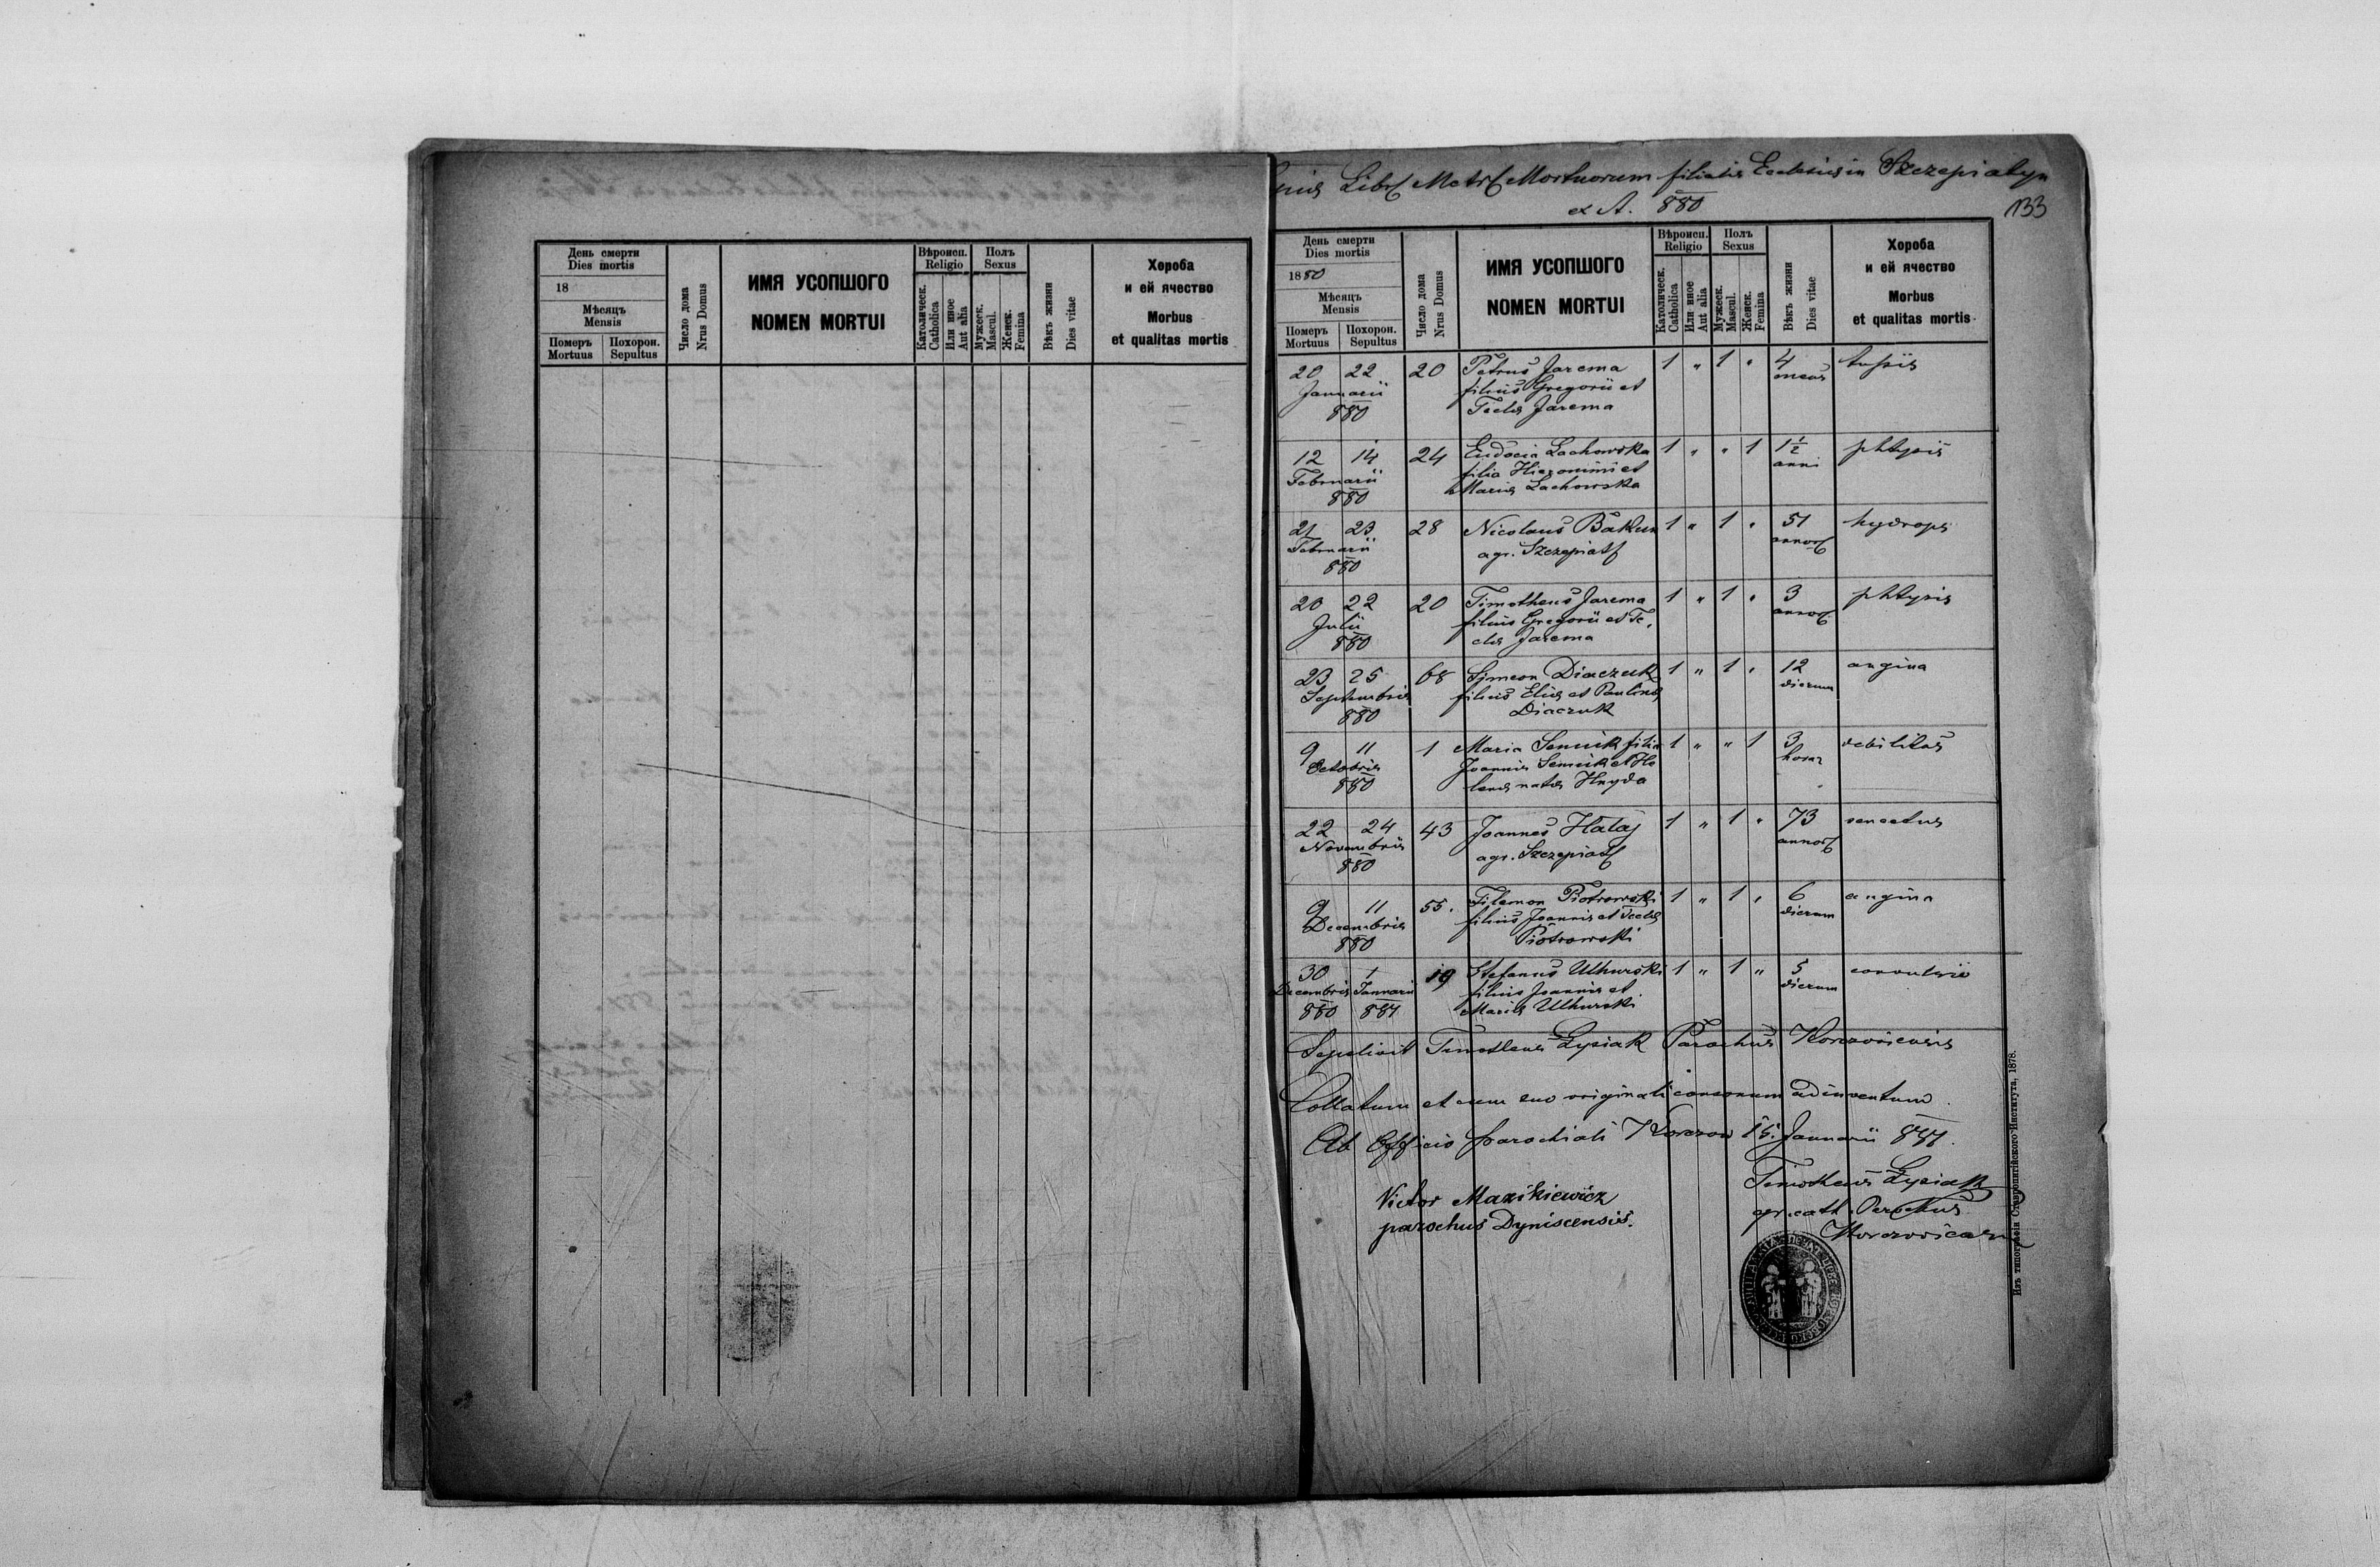 День смерти
Dies mortis
18
Мѣсяцъ
Mensis
Померъ
Mortuus
Похорон.
Sepultus
Число дома
Nrus Domus
ИМЯ УСОПШОГО
NOMEN MORTUI
Вѣроисп.
Religio
Католическ.
Catholica
Или иное
Aut alia
Полъ
Sexus
Мужеск.
Mascul.
Женск.
Femina
Вѣкъ жизни
Dies vitae
Хороба
и ей ячество
Morbus
et qualitas mortis
Libr Metr Mortuorum filialis Ecclesiae in Szczepiatyn
ex A. 880
133
День смерти
Dies mortis
1880
Мѣсяцъ
Mensis
Померъ
Mortuus
Похорон.
Sepultus
Число дома
Nrus Domus
ИМЯ УСОПШОГО
NOMEN MORTUI
Вѣроисп.
Religio
Католическ.
Catholica
Или иное
Aut alia
Полъ
Sexus
Мужеск.
Mascul.
Женск.
Femina
Вѣкъ жизни
Dies vitae
Хороба
и ей ячество
Morbus
et qualitas mortis
20 22 20 Petrus Jarema 1 " 1 " 4 tussis
Januarii filius Gregorii et mens
880 Teclae Jarema
12 14 24 Eudocia Lachowska 1 " " 1 1½ phtysis
Februarii filia Hieronimi et anni
880 Mariae Lachowska
21 23 28 Nicolaus Bakun 1 " 1 " 51 hydrops
Februarii agr. Szczepiat annor
880
20 22 20 Timotheus Jarema 1 " 1 " 3 phtysis
Julii filius Gregorii et Te annor
880 clae Jarema
23 25 68 Simeon Diaczuk 1 " 1 " 12 angina
Septembris filius Eliae et Paulinae dierum
880 Diaczuk
9 11 1 Maria Semcik filia 1 " " 1 3 debilitas
Octobris Joannis Semcik et He horar
880 lenae natae Hnyda
22 24 43 Joannes Hałaj 1 " 1 " 73 senectus
Novembris agr. Szczepiat annor
880
9 11 55. Filemon Piotrowski 1 " 1 " 6 angina
Decembris filius Joannis et Teclae dierum
880 Piotrowski
30 1 19 Stefanus Uthurski 1 " 1 " 5 convulsio
Decembris Januarii filius Joannis et dierum
880 881 Mariae Uthurski
Sepelivit Timotheus Łysiak Parochus Korczoviensis
Collatum et cum suo originali consonum adinventum.
Ab Officio parochiali Korczow 15. Januarii 881.
Timotheus Łysiak
gr. cath. Parochus
Korczoviensis
Victor Mazikiewicz
parochus Dyniscensis.
Изъ типографіи Ставропигійского Института, 1878.